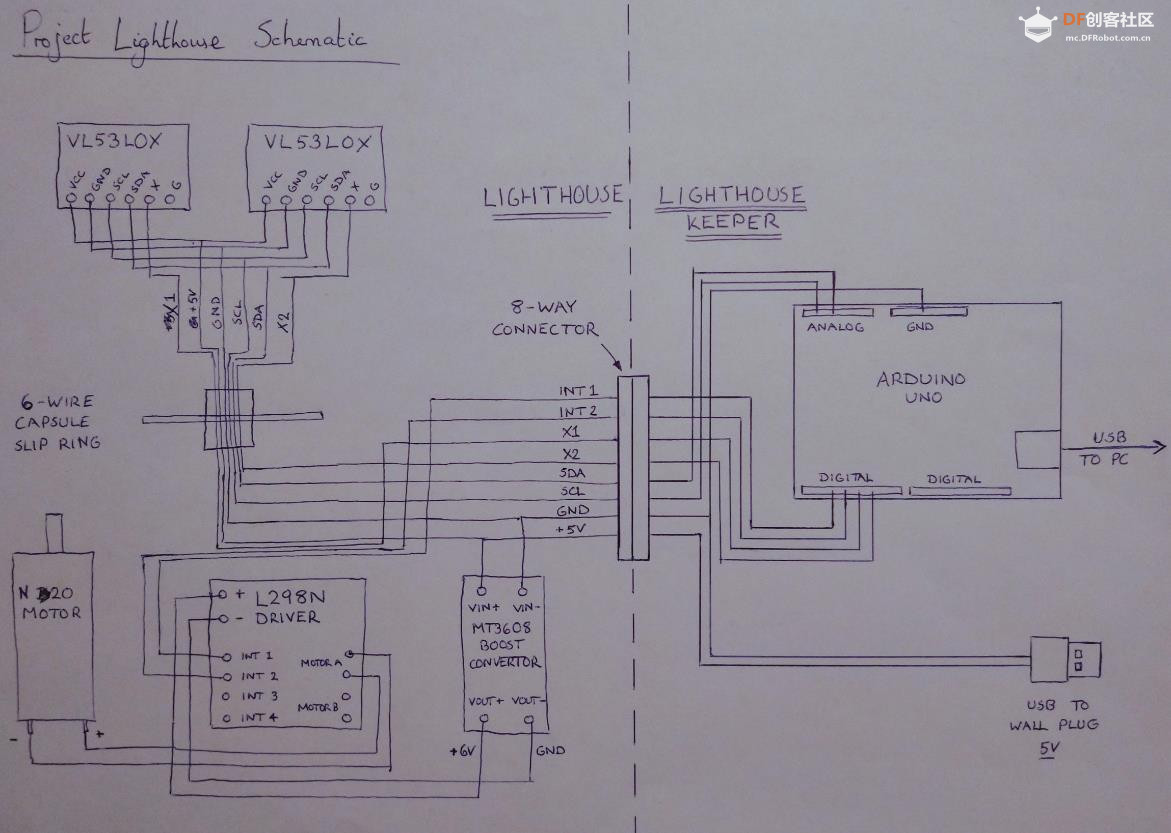 Project Lighthouse Schematic
DF创客社区
mc.DFRobot.com.cn
VL53LOX
VCC
GND
SCL
SDA
X
G
VL53LOX
VCC
GND
SCL
SDA
X
G
LIGHTHOUSE
LIGHTHOUSE
KEEPER
X1
+5V
GND
SCL
SDA
X2
8-WAY
CONNECTOR
6-WIRE
CAPSULE
SLIP RING
INT 1
INT 2
X1
X2
SDA
SCL
GND
+5V
ANALOG
GND
ARDUINO
UNO
DIGITAL
DIGITAL
USB
TO PC
N20
MOTOR
-
+
+ L298N
- DRIVER
INT 1
INT 2
INT 3
INT 4
MOTOR A
MOTOR B
VIN+ VIN-
MT3608
BOOST
CONVERTOR
VOUT+ VOUT-
+6V
GND
USB TO
WALL PLUG
5V